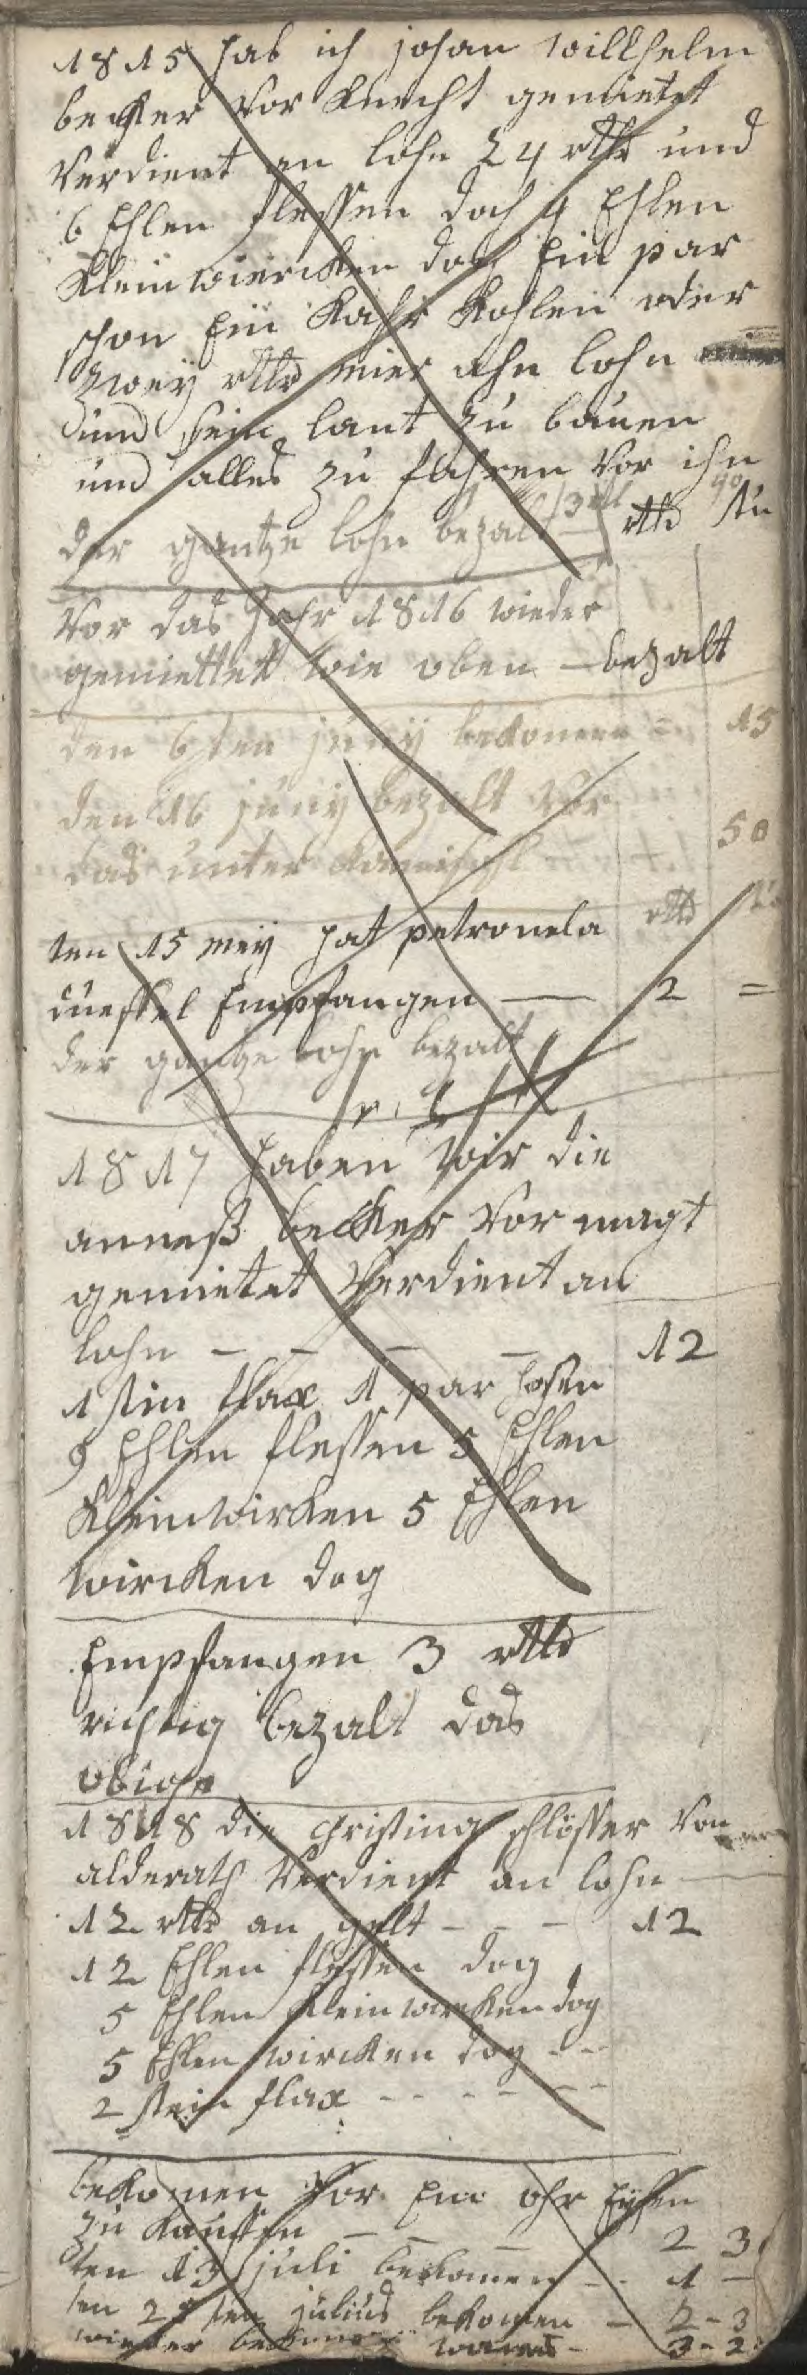 1815 hab ich johan willhelm
becker vor knecht gemietet
verdient an lohn 24 rttr und
6 Ehlen flessen doch 4 Ehlen
Kleinwiercken doch Ein par
schon Ein Kahr Kohlen oder
zwey rttr mier ahn lohn
und sein lant zu bauen
und alles zu fahren vor ihn
der gantze lohn bezalt rttr stu
Vor das Jahr 1816 wieder
gemiettet wie oben – bezalt
den 6ten juny bekomen = 15
den 16 juny bezalt vor
das unter 50
ten 15 mey hat petronela rttr
duessel Empfangen — 2 =
der gantze lohn bezalt
1817 haben wir die
anneß becker vor magt
gemietet verdient an
lohn – – – – 12
1 stin flax 1 par hosen
9 Ehlen flessen 5 Ehlen
Kleinwircken 5 Ehlen
wircken dog
Empfangen 3 rttr
richtig bezalt das
obige
1818 die christina schlösser von
alderath verdient an lohn
12 rttr an gelt – – – 12
12 Ehlen flessen dog
5 Ehlen Kleinwircken dog
5 Ehlen wircken dog - -
2 stein flax - - - - - -
bekomen vor Ein ohr Eysen
zu kauffen – – – 2 3
ten 13 juli bekomen – – 1 –
ten 2 ten julius bekomen – 2 - 3
wieder 3 - 2